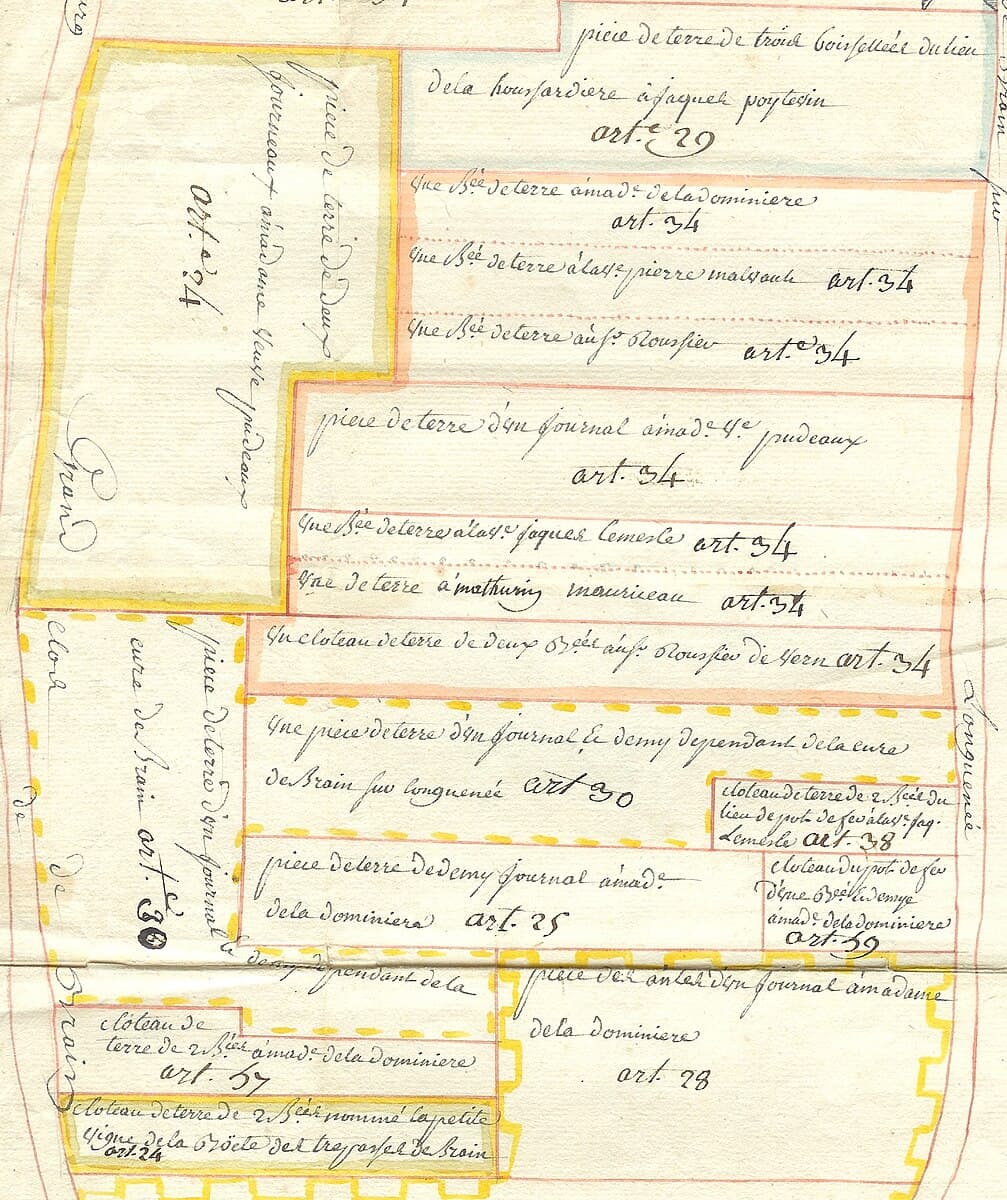 piece de terre de trois boissellées du lieu
de la houssardiere à Jaques poytevin
art.e 29
Une B.ée de terre à mad.e de la dominiere
art. 34
Une B.ée de terre à la v.e pierre malvault art. 34
Une B.ée de terre au s.r Roussier art.e 34
piece de terre d'un journal à mad.e V.e pudeaux
art. 34
Une B.ée de terre à la v.e jaques lemesle art. 34
Une de terre à mathurin mauriceau art. 34
Un cloteau de terre de deux B.ées au s.r Roussier de Vern art. 34
Une piece de terre d'un journal & demy dependant de la cure
de Brain sur longuenée art 30
cloteau de terre de 2 B.ées du
lieu de pot de fer à la v.e jaq.
Lemesle art. 38
piece de terre de demy journal à mad.e
de la dominiere art. 25
cloteau du pot de fer
d'une B.ée & demye
à mad.e de la dominiere
art. 39
piece des antes d'un journal à madame
de la dominiere
art. 28
piece de terre de deux
journeaux à madame veuve pudeaux
art.e 24
Grand
clos de
de
Brain
piece de terre d'un journal &
demy dependant de la
cure de Brain art.e 30
cloteau de
terre de 2 B.ées à mad.e de la dominiere
art. 37
cloteau de terre de 2 B.ées nommé la petite
vigne de la Boëte des trepasses de Brain
art. 24
Brain
sur
Longuenée